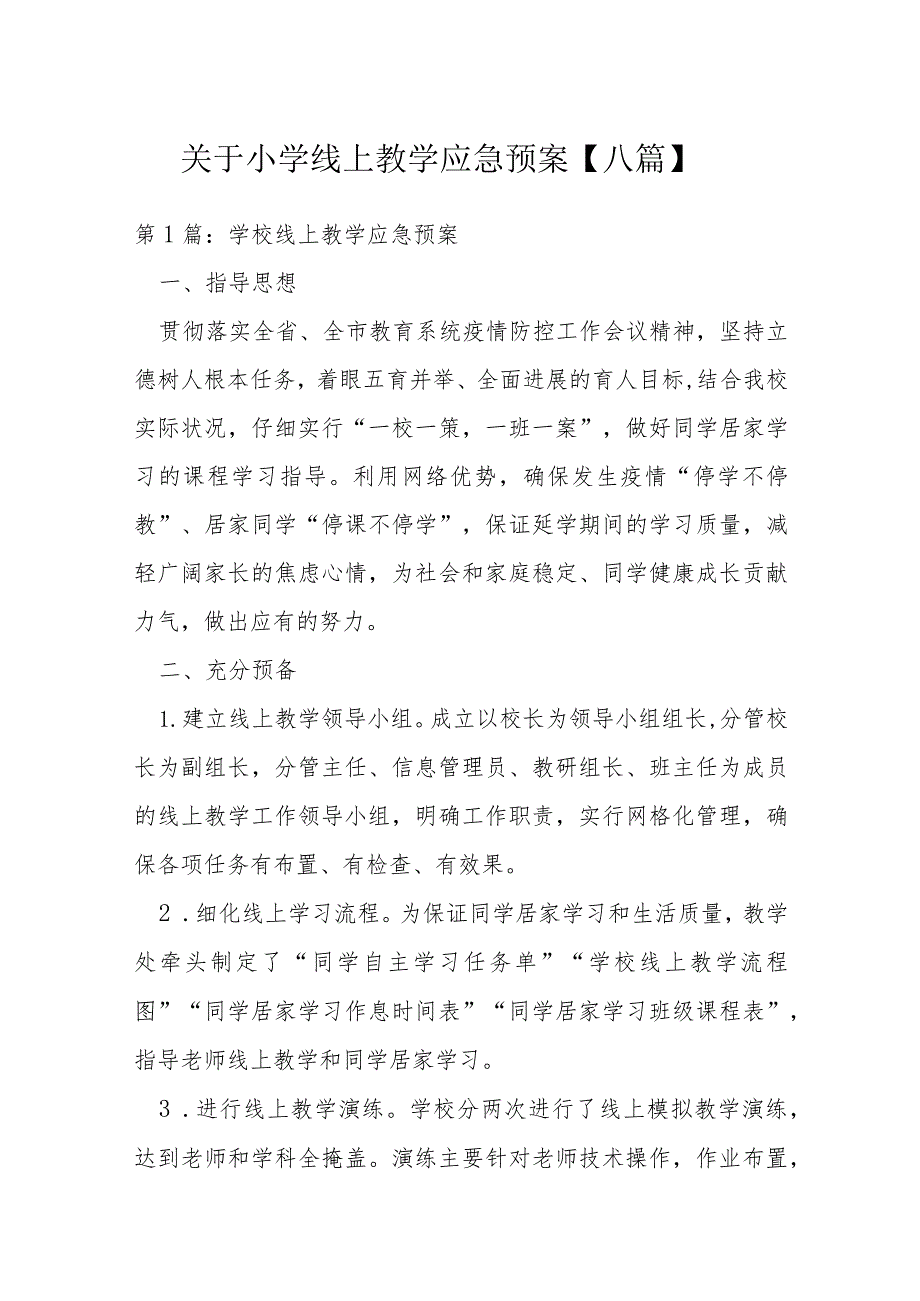 关于小学线上教学应急预案【八篇】
第1篇：学校线上教学应急预案
一、指导思想
贯彻落实全省、全市教育系统疫情防控工作会议精神，坚持立
德树人根本任务，着眼五育并举、全面进展的育人目标,结合我校
实际状况，仔细实行“一校一策，一班一案”，做好同学居家学
习的课程学习指导。利用网络优势，确保发生疫情“停学不停
教”、居家同学“停课不停学”，保证延学期间的学习质量，减
轻广阔家长的焦虑心情，为社会和家庭稳定、同学健康成长贡献
力气，做出应有的努力。
二、充分预备
1.建立线上教学领导小组。成立以校长为领导小组组长,分管校
长为副组长，分管主任、信息管理员、教研组长、班主任为成员
的线上教学工作领导小组，明确工作职责，实行网格化管理，确
保各项任务有布置、有检查、有效果。
2.细化线上学习流程。为保证同学居家学习和生活质量，教学
处牵头制定了“同学自主学习任务单”“学校线上教学流程
图”“同学居家学习作息时间表”“同学居家学习班级课程表”，
指导老师线上教学和同学居家学习。
3.进行线上教学演练。学校分两次进行了线上模拟教学演练，
达到老师和学科全掩盖。演练主要针对老师技术操作，作业布置，